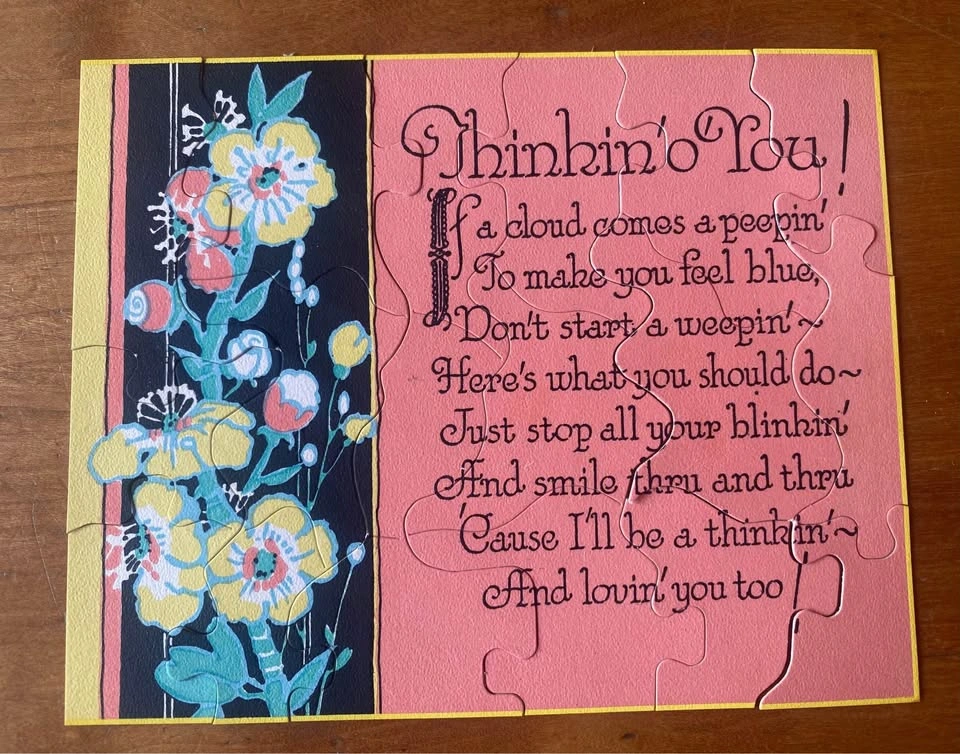 Thinkin' o' You!
If a cloud comes a peepin'
To make you feel blue,
Don't start a weepin'~
Here's what you should do~
Just stop all your blinkin'
And smile thru and thru
'Cause I'll be a thinkin'~
And lovin' you too!